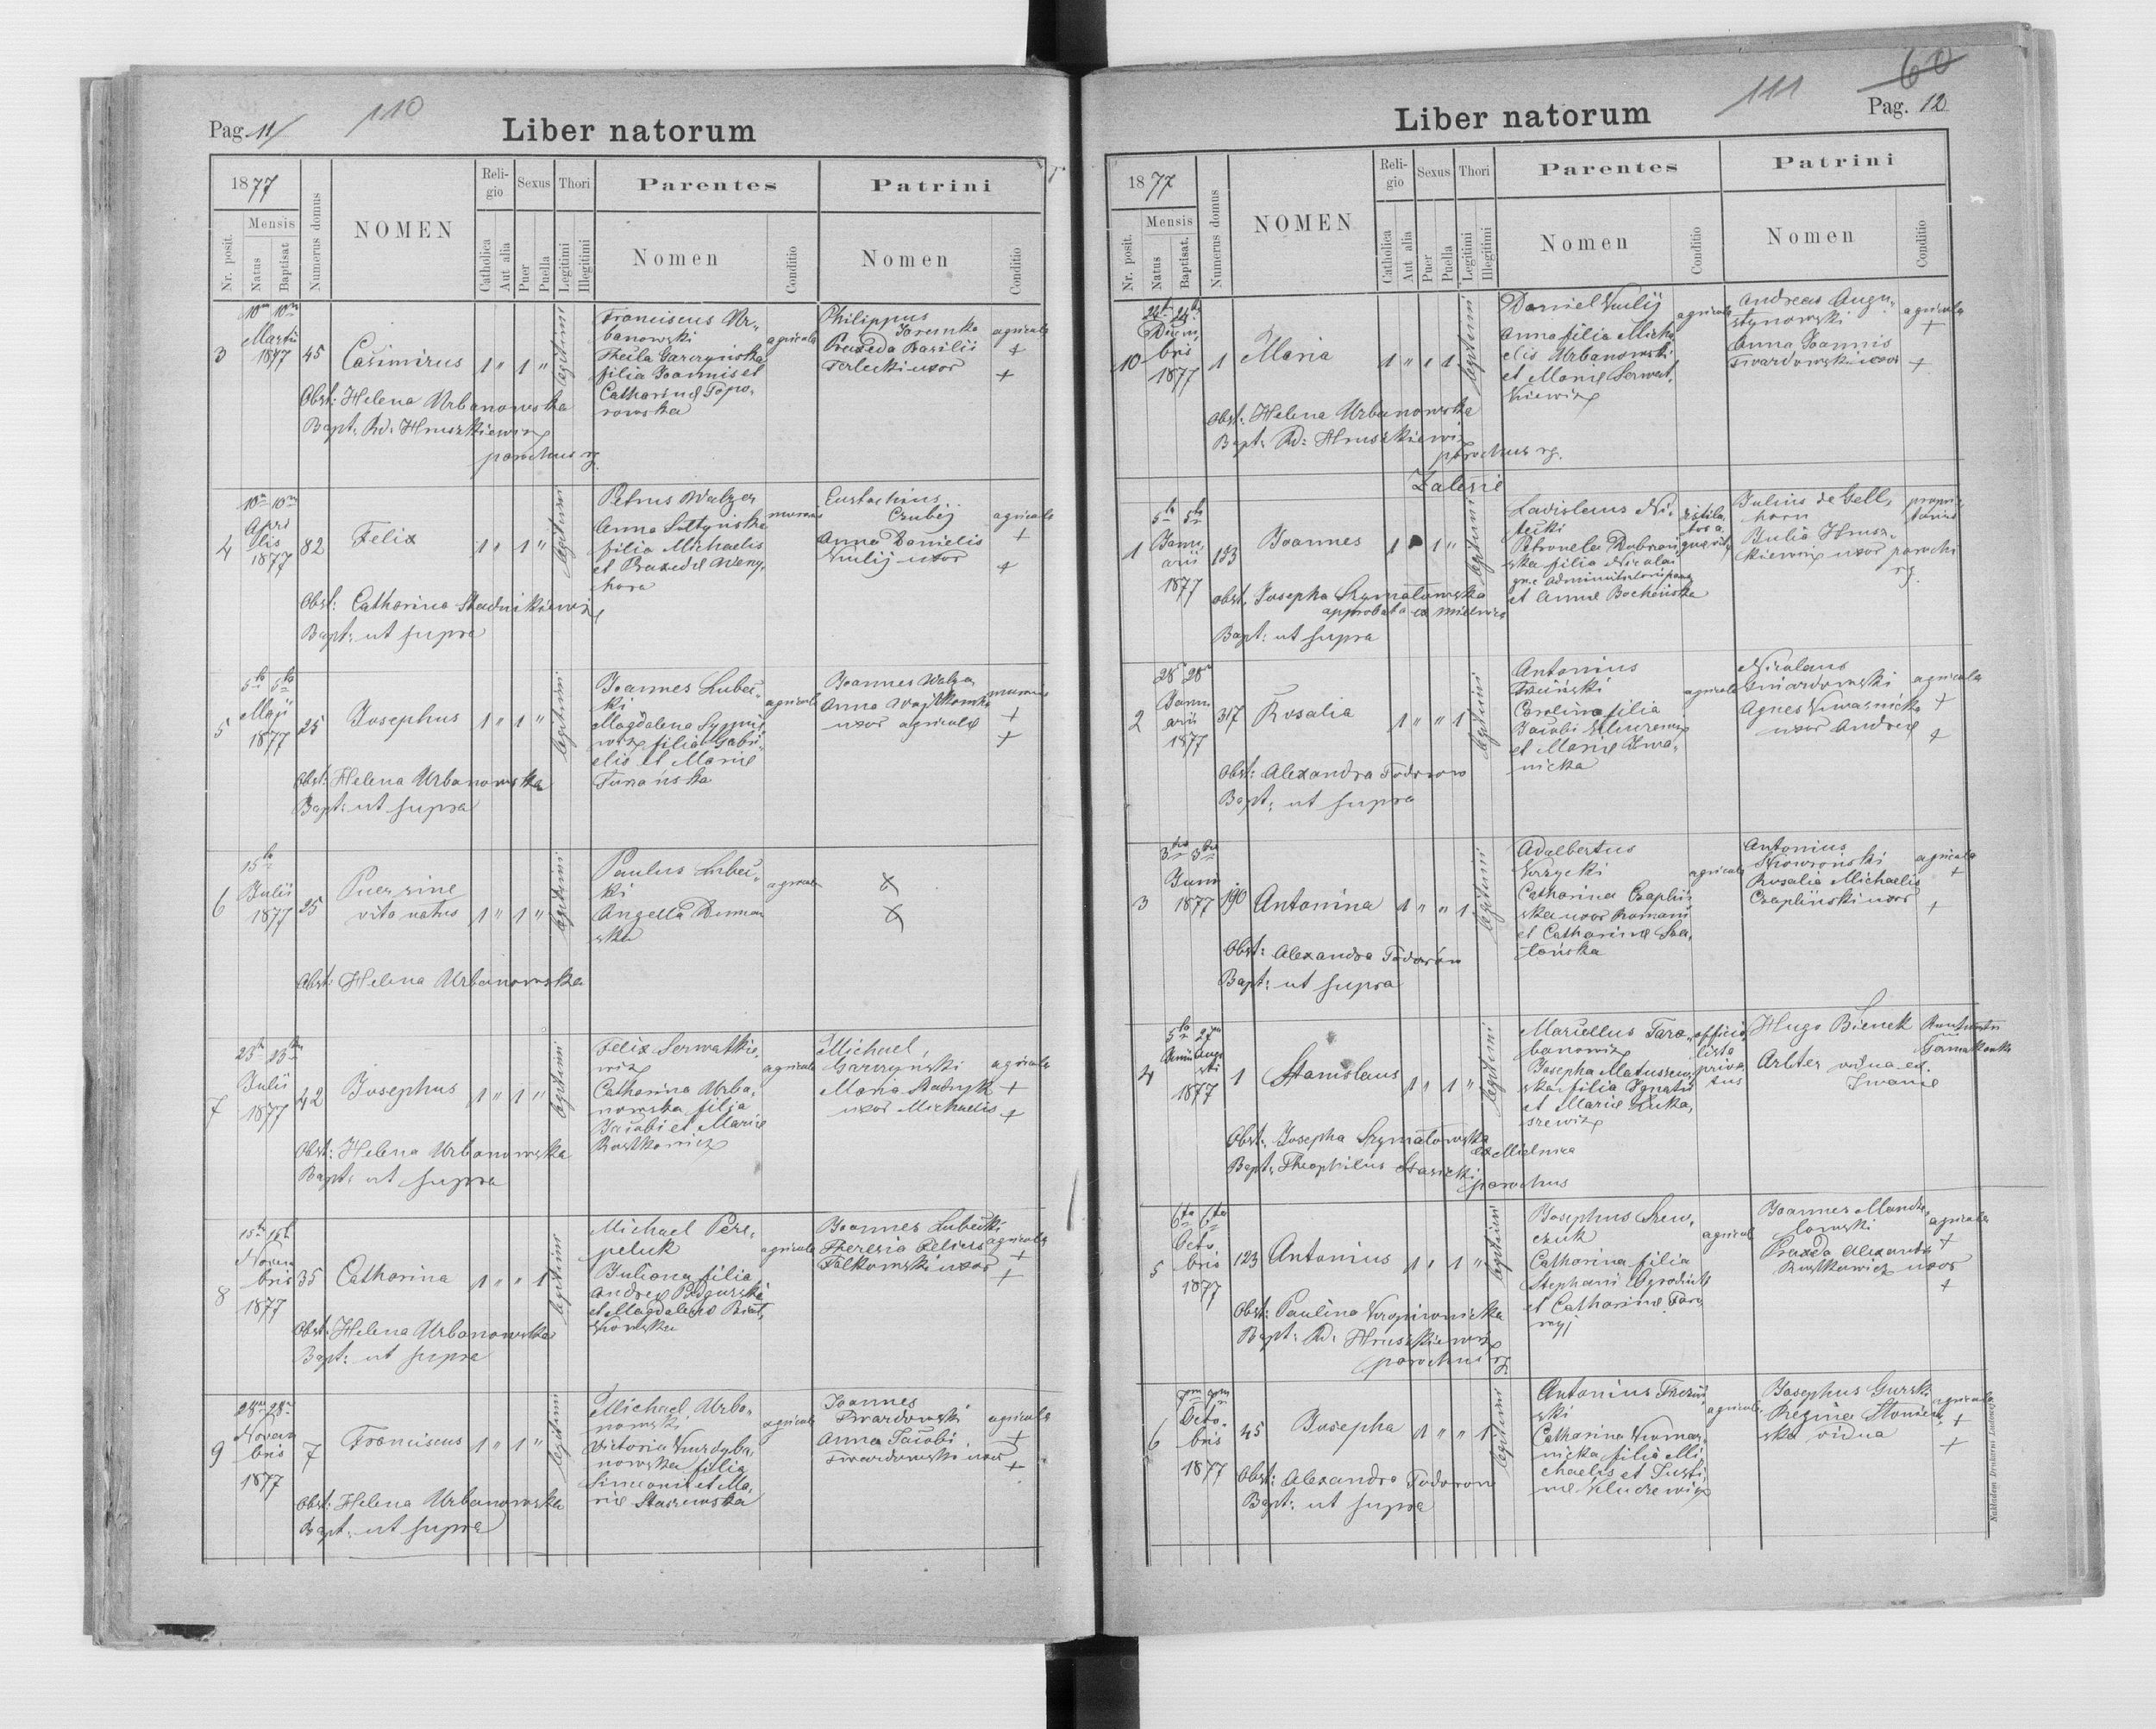 Pag. 11/
110
Liber natorum
1877
Nr. posit.
Mensis
Natus
Baptisat
Numerus domus
NOMEN
Religio
Catholica
Aut alia
Sexus
Puer
Puella
Thori
Legitimi
Illegitimi
Parentes
Nomen
Conditio
Patrini
Nomen
Conditio
3
10m 10m
Martii
1877
45
Casimirus
1 " 1 "
legitimi
Franciscus Ur-
banowski
Thecla Garczyńska
filia Joannis et
Catharinæ Topo-
rowska
agricola
Philippus
Praxeda Basilii
Terlecki uxor
agricola
+
+
Obst: Helena Urbanowska
Bapt: Rd: Hruszkiewicz
parochus rg.
4
10m 10m
Apri
lis
1877
82
Felix
1 " 1 "
legitimi
Petrus Walzer
Anna
filia Michaelis
et Praxedæ
Eustachius
Czubij
Anna Danielis
Kulij uxor
agricola
+
+
Obst: Catharina Stadnikiewicz
Bapt: ut supra
5
5ta 5ta
Maji
1877
25
Josephus
1 " 1 "
legitimi
Joannes Lubec-
ki
Magdalena
filia Gabri-
elis et Mariæ
Tumańska
agricola
Joannes Walzer
Anna
uxor agricolæ
+
+
Obst: Helena Urbanowska
Bapt: ut supra
6
15ta
Julii
1877
25
Puer sine
vita natus
1 " 1 "
legitimi
Paulus Lubec-
ki
Angella
ska
agricola
x
x
Obst: Helena Urbanowska
7
23m 23m
Julii
1877
42
Josephus
1 " 1 "
legitimi
Felix Serwatkie-
wicz
Catharina Urba-
nowska filia
Jacobi et Mariæ
Rostkowicz
agricola
Michael
Garczynski
Maria
uxor Michaelis
agricola
+
+
Obst: Helena Urbanowska
Bapt: ut supra
8
15m 15m
Novem
bris
1877
35
Catharina
1 " " 1
legitimi
Michael Pere-
peluk
Juliana filia
Andreæ Podgurski
et Magdalenæ
agricola
Joannes Lubecki
Theresia Felicis
Falkowski uxor
agricola
+
+
Obst: Helena Urbanowska
Bapt: ut supra
9
28m 28m
Novem
bris
1877
7
Franciscus
1 " 1 "
legitimi
Michael Urba-
nowski
Victoria Kurdyba-
nowska filia
Simeonis et Ma-
riæ Staszewska
agricola
Joannes
Twardowski
Anna Jacobi
Twardowski uxor
agricola
+
+
Obst: Helena Urbanowska
Bapt: ut supra
111
60
Pag. 12
Liber natorum
1877
Nr. posit.
Mensis
Natus
Baptisat.
Numerus domus
NOMEN
Religio
Catholica
Aut alia
Sexus
Puer
Puella
Thori
Legitimi
Illegitimi
Parentes
Nomen
Conditio
Patrini
Nomen
Conditio
10
24ta 24ta
Decem
bris
1877
1
Maria
1 " " 1
legitimi
Daniel Kulij
Anna filia Micha
elis Urbanowski
et Mariæ Serwat-
kiewicz
agricola
Andreas Augu-
stynowski
Anna Joannis
Twardowski uxor
agricola
+
+
Obst: Helena Urbanowska
Bapt: Rd: Hruszkiewicz
parochus rg.
Zalesie
1
5ta 5ta
Janu
arii
1877
183
Joannes
1 " 1 "
legitimi
Ladislaus Ni-
tecki
Petronela
ska filia Nicolai
et Annæ Bocheńska
Julius de Gell-
horn
Julia Hrusz-
kiewicz uxor parochi
rg.
Obst: Josepha Szymatowska
approbata ex Mielnica
Bapt: ut supra
2
28m 28m
Janu
arii
1877
317
Rosalia
1 " " 1
legitimi
Antonius
Carolina filia
Jacobi Kluzewicz
et Mariæ Iwa-
nicka
agricola
Nicolaus
Twardowski
Agnes
uxor Andreæ
agricola
+
+
Obst: Alexandra Todorow
Bapt: ut supra
3
3tia 3tia
Junii
1877
190
Antonina
1 " " 1
legitimi
Adalbertus
Krzycki
Catharina Czapliń
ska uxor Romani
et Catharinæ
agricola
Antonius
Skowroński
Rosalia Michaelis
Czapliński uxor
agricola
+
+
Obst: Alexandra Todorów
Bapt: ut supra
4
5ta 27m
Augu
sti
1877
1
Stanislaus
1 " 1 "
legitimi
Marcellus Tara-
banowicz
Josepha Matuszew-
ska filia Ignatii
et Mariæ Luka-
szewicz
officia
lista
priva
tus
Hugo Bienek
Arlter vidua ex
Iwanie
Obst: Josepha Szymatowska
ex Mielnica
Bapt: Theophilus Starzecki
parochus
5
6ta 6ta
Octo
bris
1877
123
Antonius
1 " 1 "
legitimi
Josephus Szew-
czuk
Catharina filia
Stephani Ogrodnik
et Catharinæ
agricola
Joannes
Praxeda Alexandri
Rostkowicz uxor
agricola
+
+
Obst: Paulina Kropiwnicka
Bapt: Rd: Hruszkiewicz
parochus rg.
6
7m 7m
Octo
bris
1877
45
Josepha
1 " " 1
legitimi
Antonius
ski
Catharina
nicka filia Mi-
chaelis et Justi-
næ Kluczewicz
agricola
Josephus Gurski
Regina Stoniec-
ska vidua
agricola
+
+
Obst: Alexandra Todorow
Bapt: ut supra